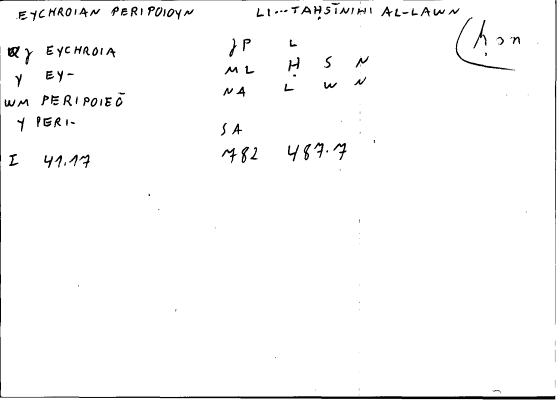 EYCHROIAN PERIPOIOYN LI...TAḤSĪNIHI AL-LAWN
ḥsn
γ EYCHROIA γP L
γ EY- ML Ḥ S N
WM PERIPOIEŌ NA L W N
γ PERI- SA
I 41.17 782 487.7